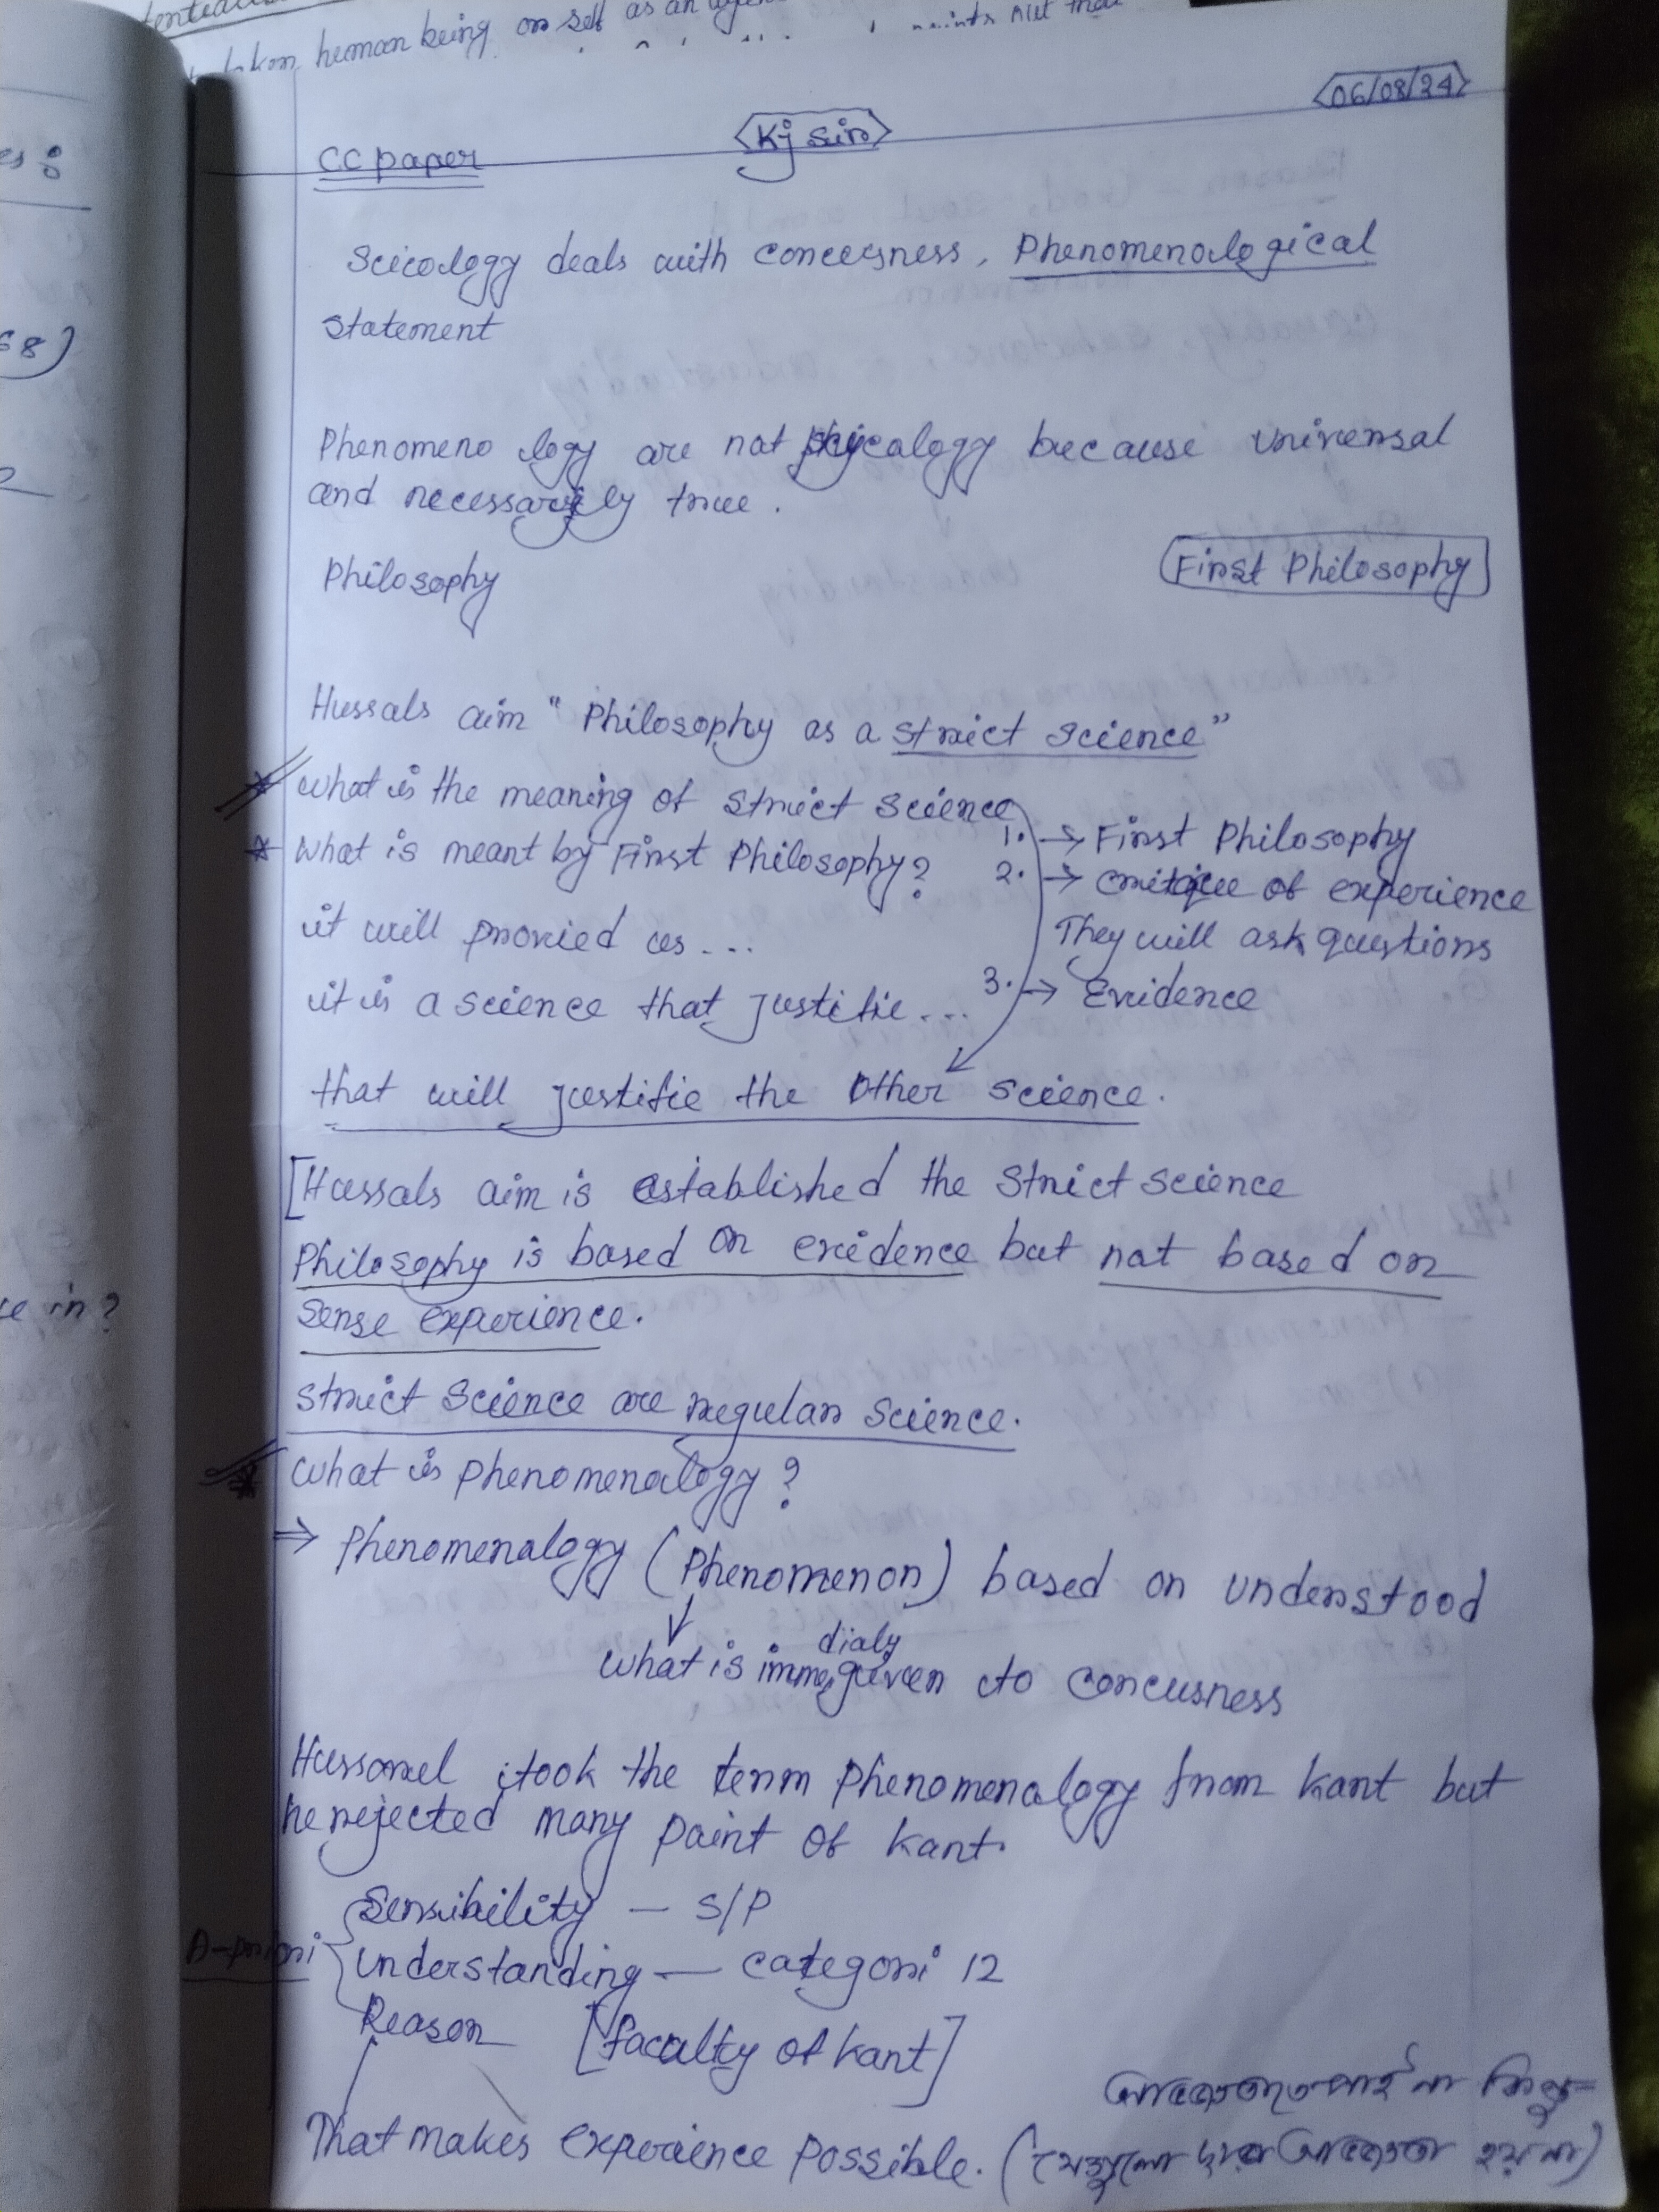 taken human being or self as an
points out that
06/08/24
Kj Sir
CC paper
es:
Scicology deals with conceesness, Phenomenological
statement
68)
Phenomeno logy are not phycalogy because universal
and necessarily true.
Philosophy
First Philosophy
Hussals aim "Philosophy as a strict science"
* What is the meaning of strict science
1. → First Philosophy
* What is meant by First Philosophy?
2. → critique of experience
it will provied us...
They will ask questions
it is a science that justifie...
3. → Evidence
that will justifie the Other science.
[Hussals aim is established the strict science
Philosophy is based on evidence but not based on
ce in?
Sense experience.
Strict Science are regular science.
* What is phenomenalogy?
⇒ Phenomenalogy (Phenomenon) based on understood
dialy
What is imme given to concusness
Hussarel took the term Phenomenalogy from Kant but
he rejected many point of Kant.
Sensibility — S/P
A-priori
understanding — categori 12
Reason [faculty of Kant]
That makes experience possible.